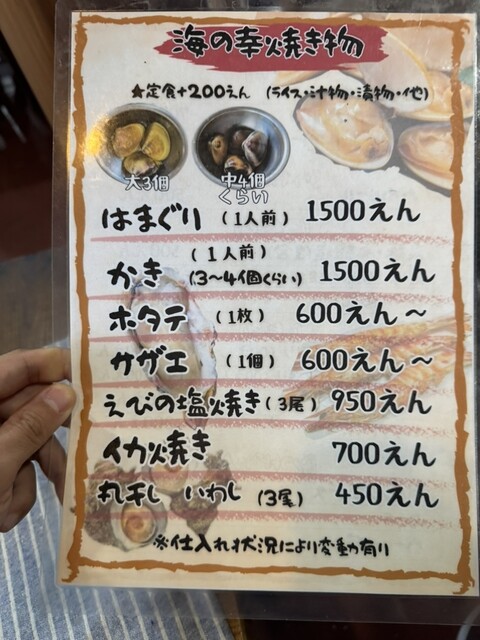 海の幸焼き物
★定食+200えん (ライス・汁物・漬物・他)
大3個 中4個くらい
はまぐり (1人前) 1500えん
かき (1人前) (3～4個くらい) 1500えん
ホタテ (1枚) 600えん～
サザエ (1個) 600えん～
えびの塩焼き(3尾) 950えん
イカ焼き 700えん
丸干し いわし (3尾) 450えん
※仕入れ状況により変動有り